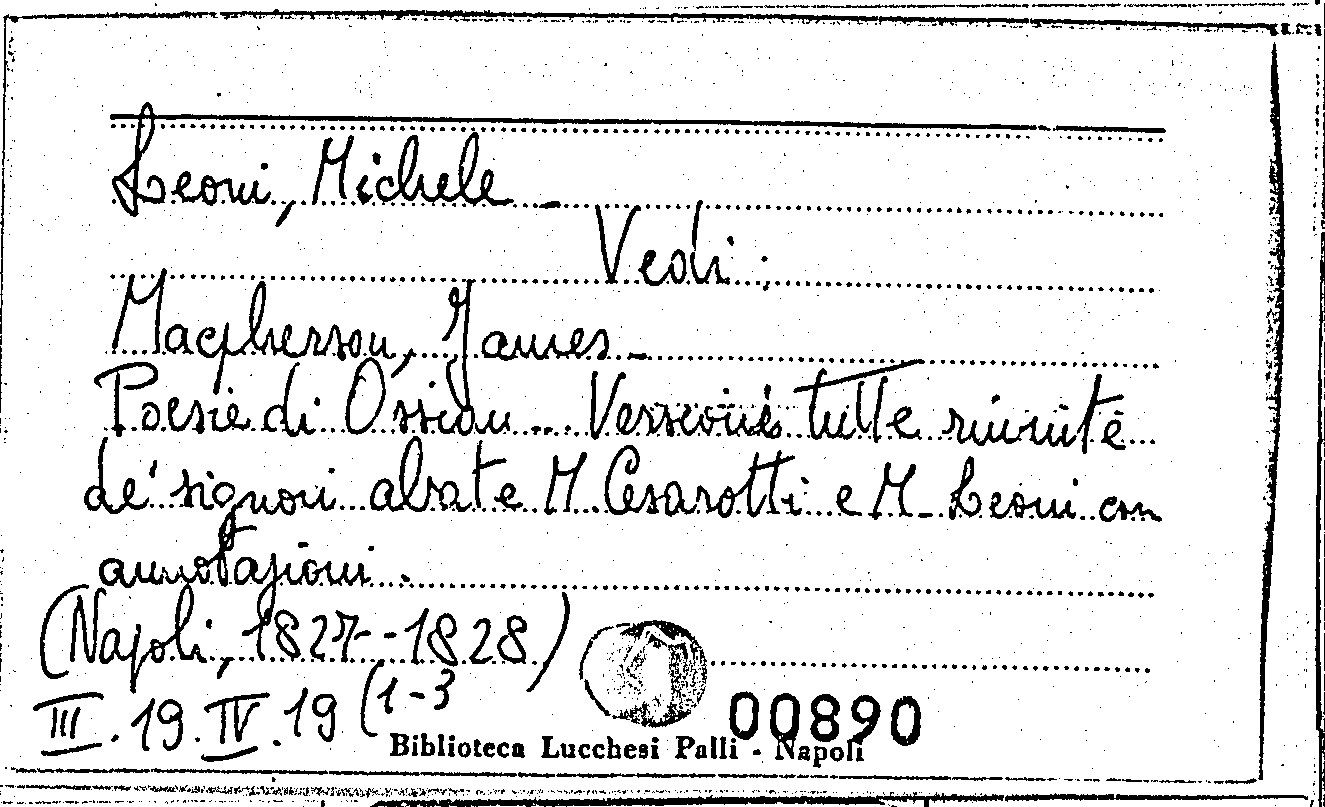 Leoni, Michele -
Vedi:
Macpherson, James -
Poesie di Ossian... Versioni tutte riunite
de' signori abate M. Cesarotti e M. Leoni con
annotazioni.
(Napoli, 1827--1828)
III. 19. IV. 19 (1-3
00890
Biblioteca Lucchesi Palli - Napoli